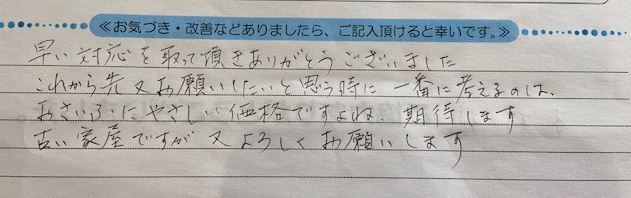 ≪お気づき・改善などありましたら、ご記入頂けると幸いです。≫
早い対応を取って頂きありがとうございました
これから先又お願いしたいと思う時に一番に考えるのは、
おさいふにやさしい価格ですよね.期待します
古い家屋ですが又よろしくお願いします